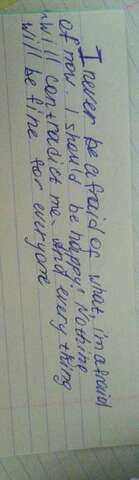 I never be afraid of what, im afraid
of now. I should be happy! Nothing
will contradict me. And every thing
will be fine for everyone